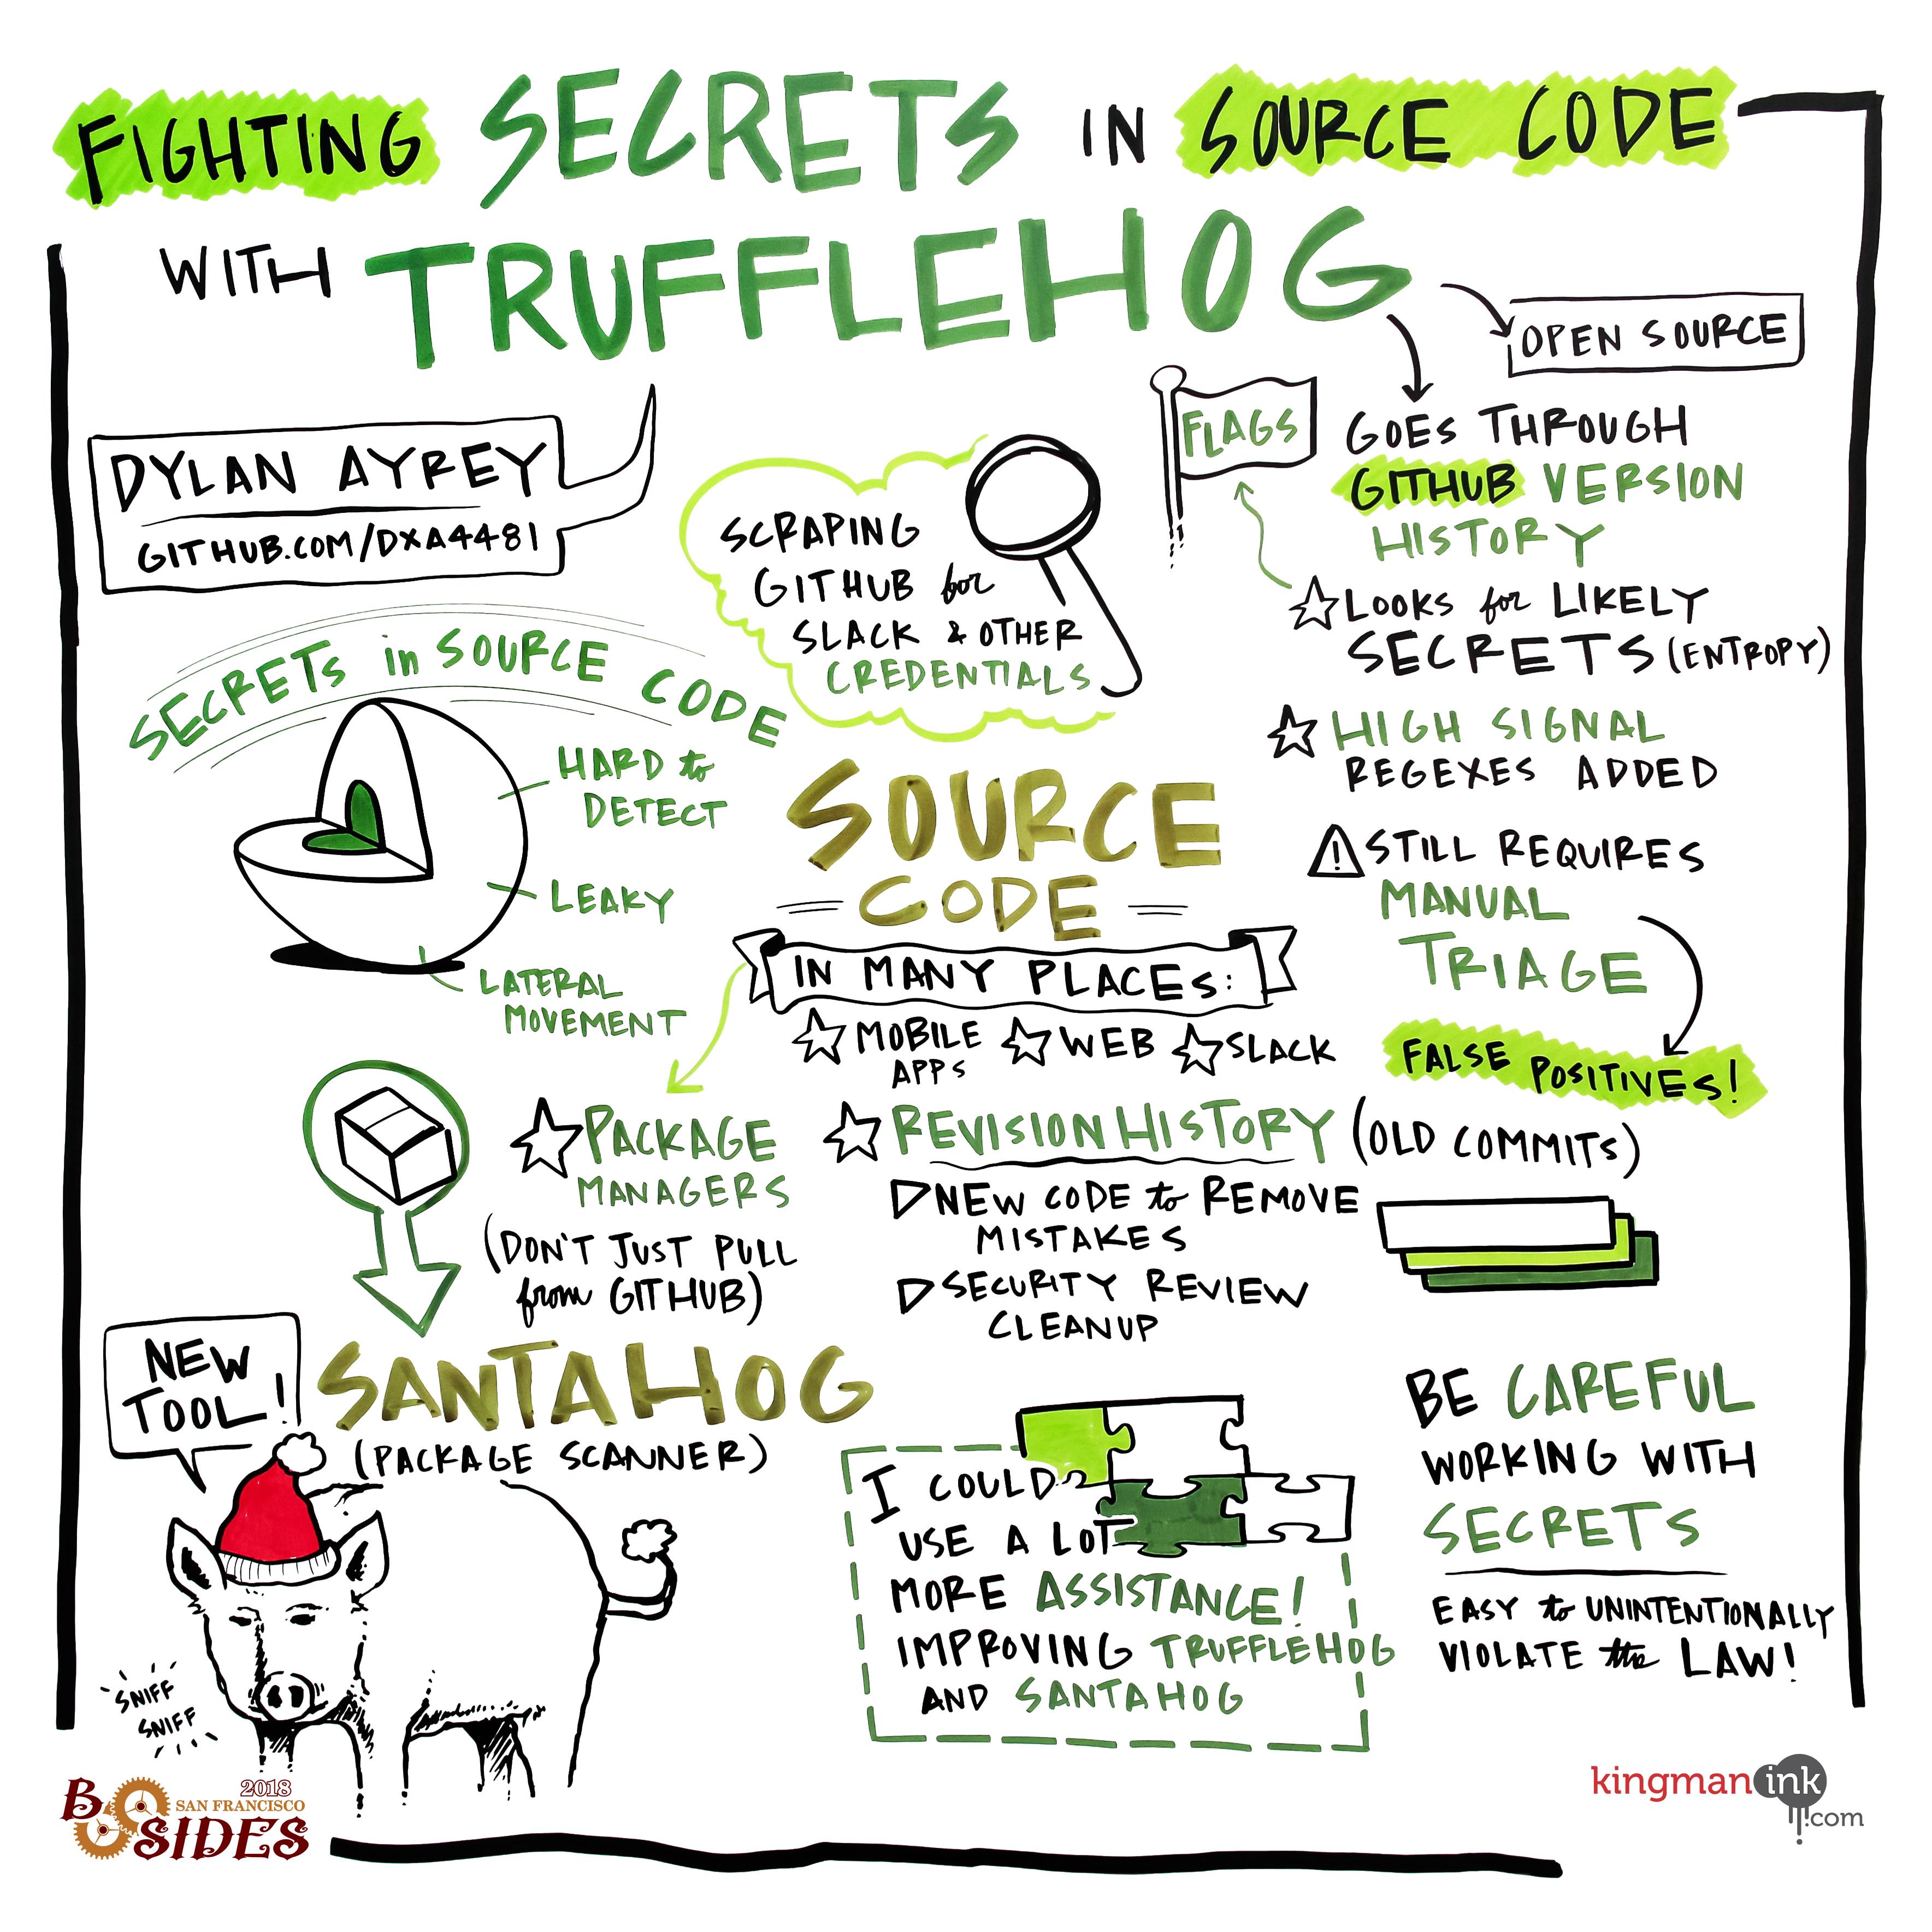 FIGHTING SECRETS IN SOURCE CODE
WITH TRUFFLEHOG
OPEN SOURCE
DYLAN AYREY
GITHUB.COM/DXA4481
SCRAPING
GITHUB for
SLACK & OTHER
CREDENTIALS
FLAGS
GOES THROUGH
GITHUB VERSION
HISTORY
LOOKS for LIKELY
SECRETS (ENTROPY)
HIGH SIGNAL
REGEXES ADDED
STILL REQUIRES
MANUAL
TRIAGE
FALSE POSITIVES!
SECRETS in SOURCE CODE
HARD to
DETECT
LEAKY
LATERAL
MOVEMENT
SOURCE
CODE
IN MANY PLACES:
MOBILE
APPS
WEB
SLACK
PACKAGE
MANAGERS
(DON'T JUST PULL
from GITHUB)
REVISION HISTORY (OLD COMMITS)
NEW CODE to REMOVE
MISTAKES
SECURITY REVIEW
CLEANUP
NEW
TOOL!
SANTAHOG
(PACKAGE SCANNER)
SNIFF
SNIFF
I COULD
USE A LOT
MORE ASSISTANCE!
IMPROVING TRUFFLEHOG
AND SANTAHOG
BE CAREFUL
WORKING WITH
SECRETS
EASY to UNINTENTIONALLY
VIOLATE the LAW!
2018
SAN FRANCISCO
BSIDES
kingman ink
.com